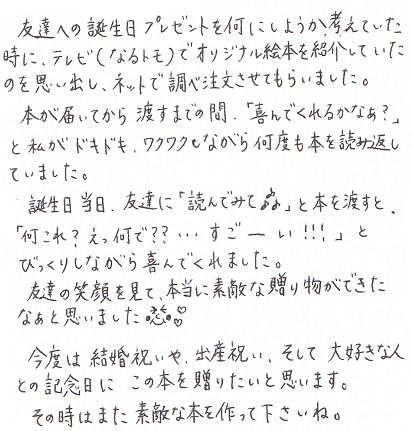 友達への誕生日プレゼントを何にしようか、考えていた
時に、テレビ(なるトモ)でオリジナル絵本を紹介していた
のを思い出し、ネットで調べ注文させてもらいました。
本が届いてから渡すまでの間、「喜んでくれるかなぁ?」
と私がドキドキ、ワクワクしながら何度も本を読み返し
ていました。
誕生日当日、友達に「読んでみて♪」と本を渡すと、
「何これ?えっ何で??…すごーい!!!」と
びっくりしながら喜んでくれました。
友達の笑顔を見て、本当に素敵な贈り物ができた
なぁと思いました♡
今度は結婚祝いや、出産祝い、そして大好きな人
との記念日にこの本を贈りたいと思います。
その時はまた素敵な本を作って下さいね。